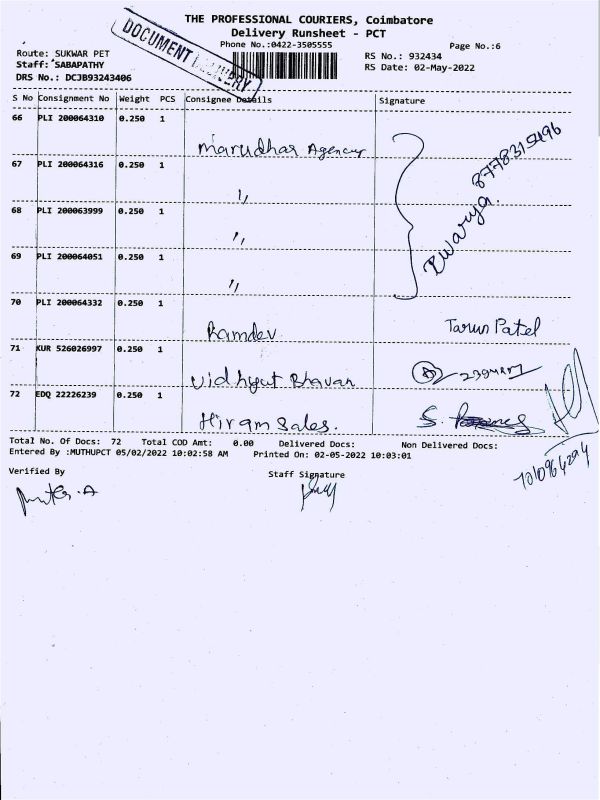 THE PROFESSIONAL COURIERS, Coimbatore
Delivery Runsheet - PCT
Phone No.:0422-3505555
Page No.:6
DOCUMENT DELIVERY
Route: SUKWAR PET
Staff: SABAPATHY
DRS No.: DCJB93243406
RS No.: 932434
RS Date: 02-May-2022
S No Consignment No Weight PCS Consignee Details Signature
66 PLI 200064310 0.250 1
Marudhar Agency
67 PLI 200064316 0.250 1
"
68 PLI 200063999 0.250 1
"
69 PLI 200064051 0.250 1
"
70 PLI 200064332 0.250 1
Ramdev Tarun Patel
71 KUR 526026997 0.250 1
Vidhyut Bhavan
72 EDQ 22226239 0.250 1
Hiram Sales. S.
Total No. Of Docs: 72 Total COD Amt: 0.00 Delivered Docs: Non Delivered Docs:
Entered By :MUTHUPCT 05/02/2022 10:02:58 AM Printed On: 02-05-2022 10:03:01
Verified By
Staff Signature